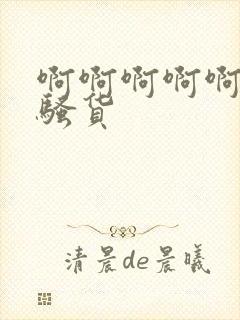 啊啊啊啊啊
骚货
清晨de晨曦